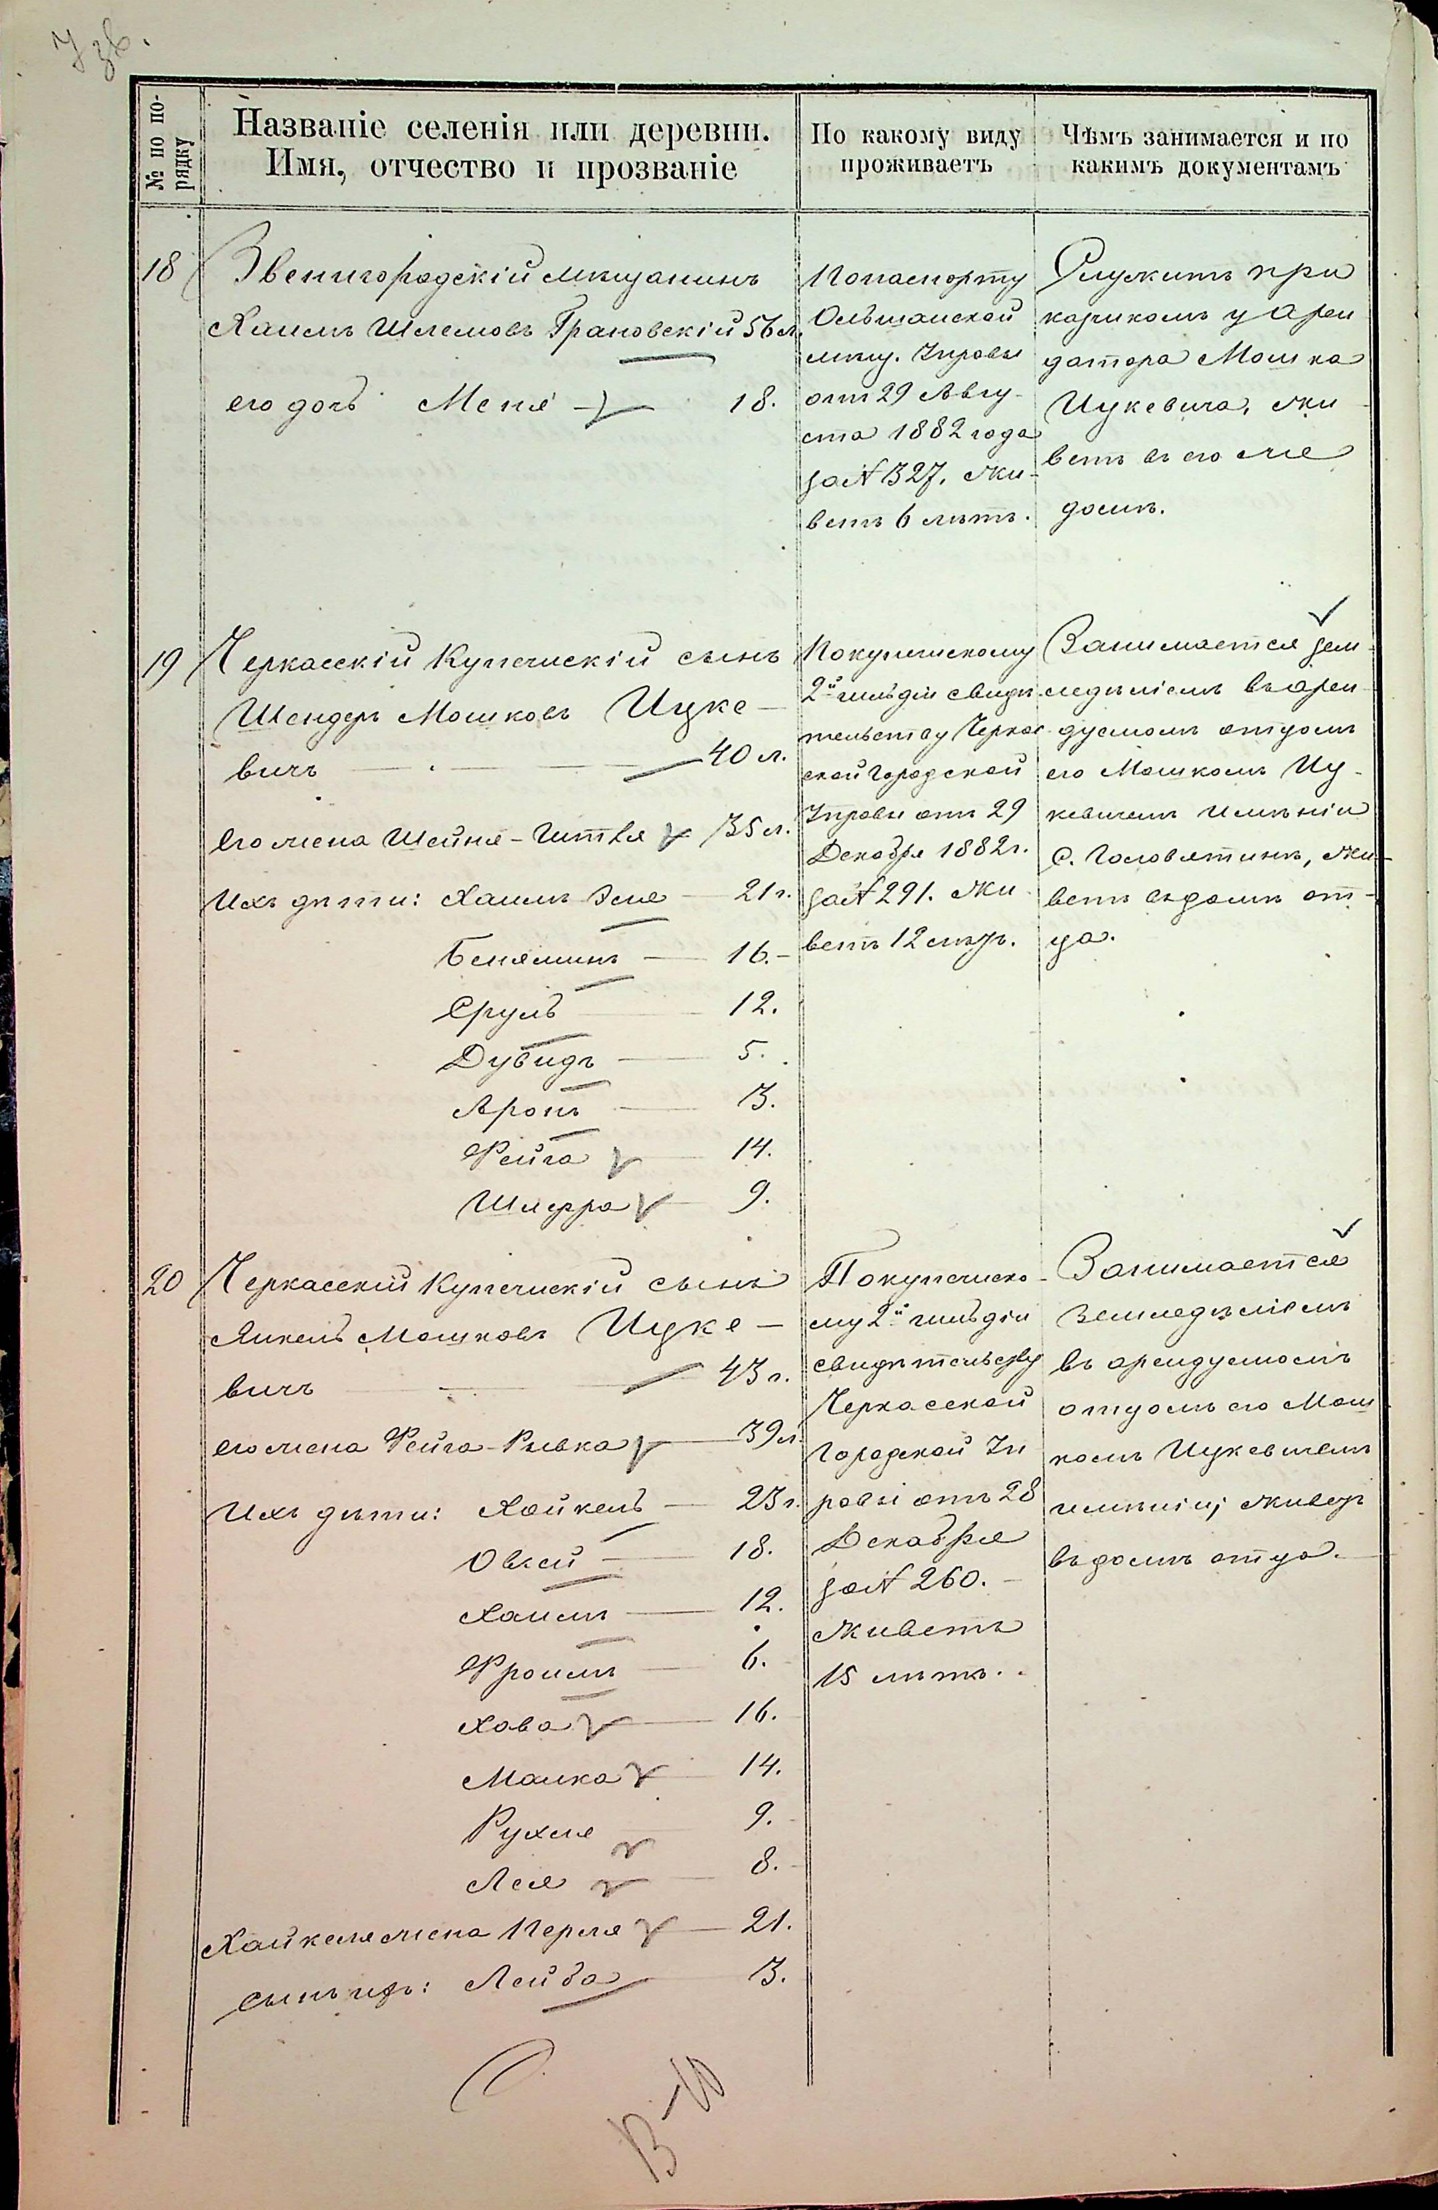 7 зв.
№ по по-
рядку
Названіе селенія или деревни.
Имя, отчество и прозваніе
По какому виду
проживаетъ
Чѣмъ занимается и по
какимъ документамъ
18
Звенигородскій мѣщанинъ
Хаимъ Шлемовъ Грановскій 56 л.
его дочь Меня 18.
По паспорту
Ольшанской
мѣщ. Управы
отъ 29 Авгу-
ста 1882 года
за № 327. Жи-
ветъ 6 лѣтъ.
Служитъ при
кащикомъ у арен
датора Мошка
Ицкевича, жи
ветъ въ его же
домѣ.
19
Черкасскій Купеческій сынъ
Шендеръ Мошковъ Ицке-
вичъ 40 л.
Его жена Шейня-Гитля 35 л.
Ихъ дѣти: Хаимъ Зеля 21 г.
Беняминъ 16.
Сруль 12.
Дувидъ 5.
Аронъ 3.
Фейга 14.
Шифра 9.
По купеческому
2й гильдіи свидѣ
тельству Черкас
ской Городской
Управы отъ 29
Декабря 1882 г.
за № 291. Жи
ветъ 12 лѣтъ.
Занимается зем
ледѣліемъ въ арен
дуемомъ отцомъ
его Мошкомъ Иц-
кевичемъ имѣніи
с. Головятинѣ, жи-
ветъ въ домѣ от-
ца.
20
Черкасскій Купеческій сынъ
Янкель Мошковъ Ицке-
вичъ 43 г.
его жена Фейга-Рывка 39 л.
Ихъ дѣти: Хайкель 23 г.
Овсей 18.
Хаимъ 12.
Фроимъ 6.
Хава 16.
Малка 14.
Рухля 9.
Лея 8.
Хайкеля жена Перля 21.
сынъ ихъ: Лейба 3.
По купеческо-
му 2й гильдіи
свидѣтельству
Черкасской
Городской Уп
равы отъ 28
Декабря
за № 260.
Живетъ
15 лѣтъ.
Занимается
земледѣліемъ
въ арендуемомъ
отцомъ его Мош
комъ Ицкевичемъ
имѣніи; живетъ
въ домѣ отца.
13-10